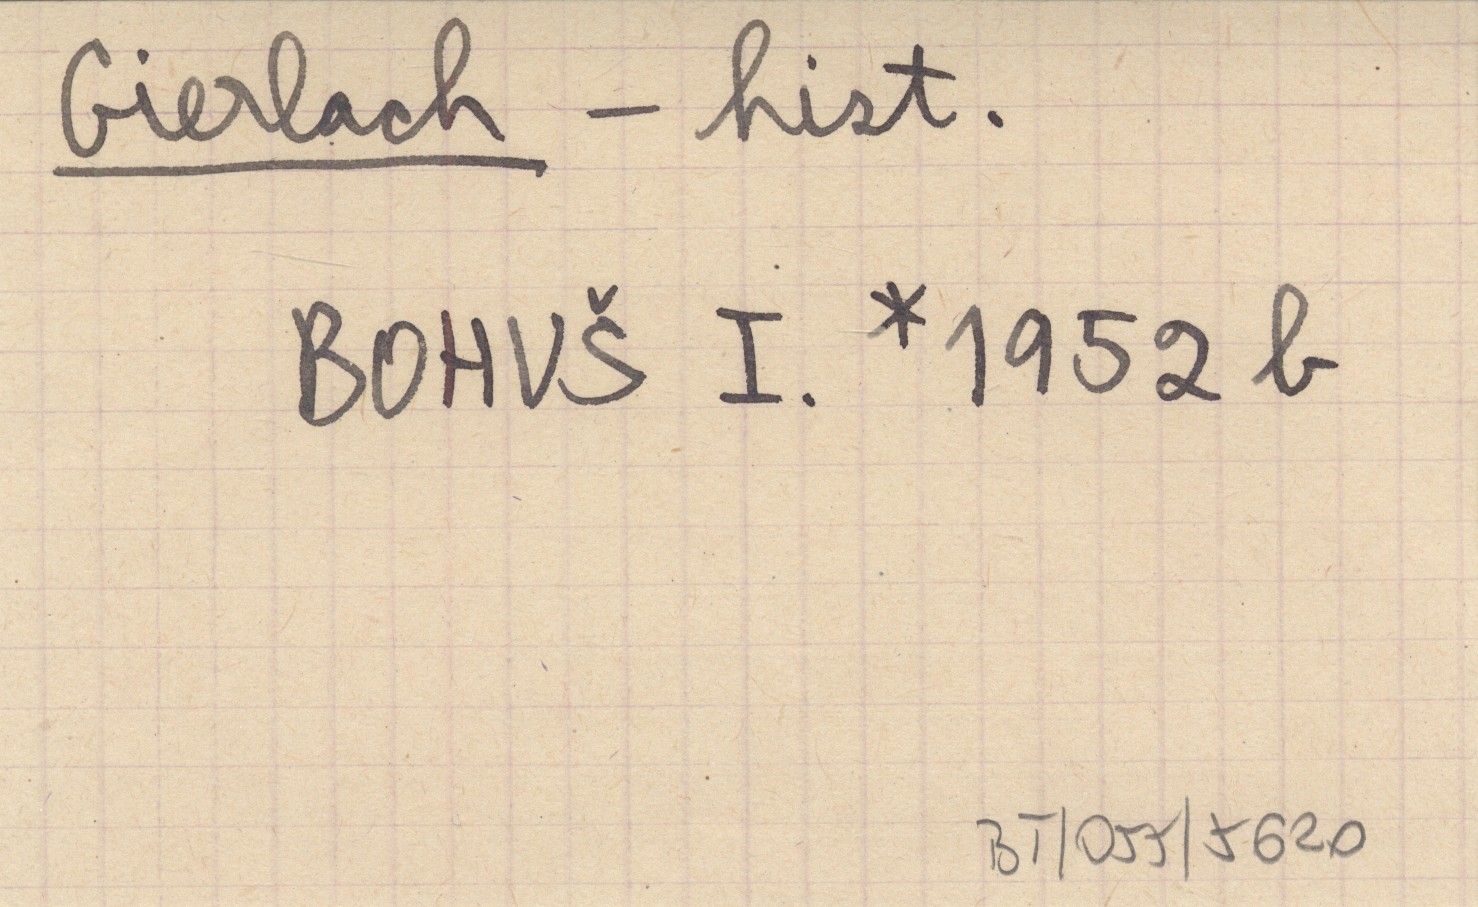 Gierlach – hist.
BOHUŠ I. *1952 b
BT/055/5620